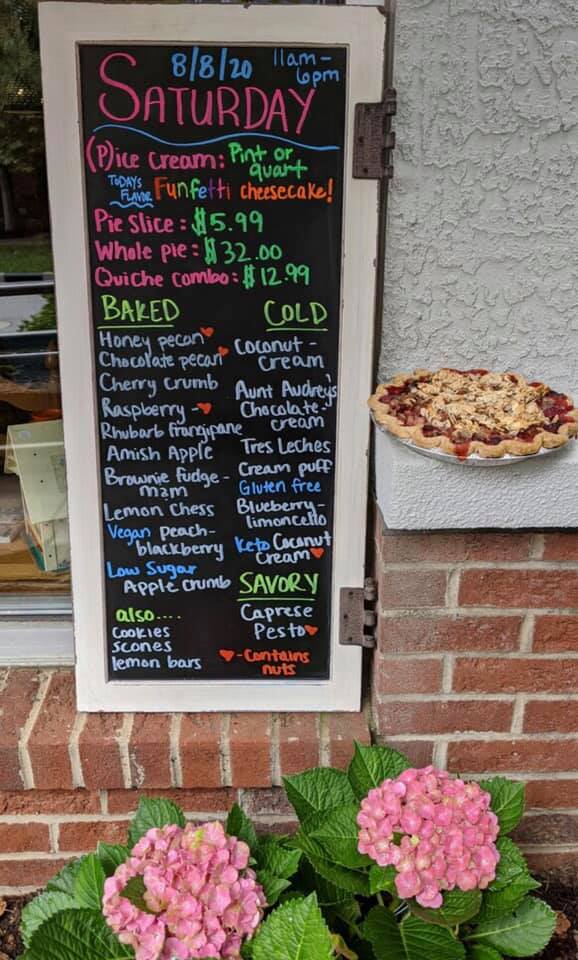 8/8/20 11am-
6pm
SATURDAY
(P)ice Cream: Pint or
quart
TODAYS
FLAVOR Funfetti cheesecake!
Pie Slice: $5.99
Whole pie: $32.00
Quiche combo: $12.99
BAKED
Honey pecan
Chocolate pecan
Cherry crumb
Raspberry -
Rhubarb frangipane
Amish Apple
Brownie fudge -
m&m
Lemon Chess
Vegan Peach-
blackberry
Low Sugar
Apple crumb
also....
cookies
scones
lemon bars
COLD
Coconut -
cream
Aunt Audrey's
Chocolate -
cream
Tres Leches
Cream puff
Gluten free
Blueberry -
limoncello
Keto Coconut
Cream
SAVORY
Caprese
Pesto
- Contains
nuts